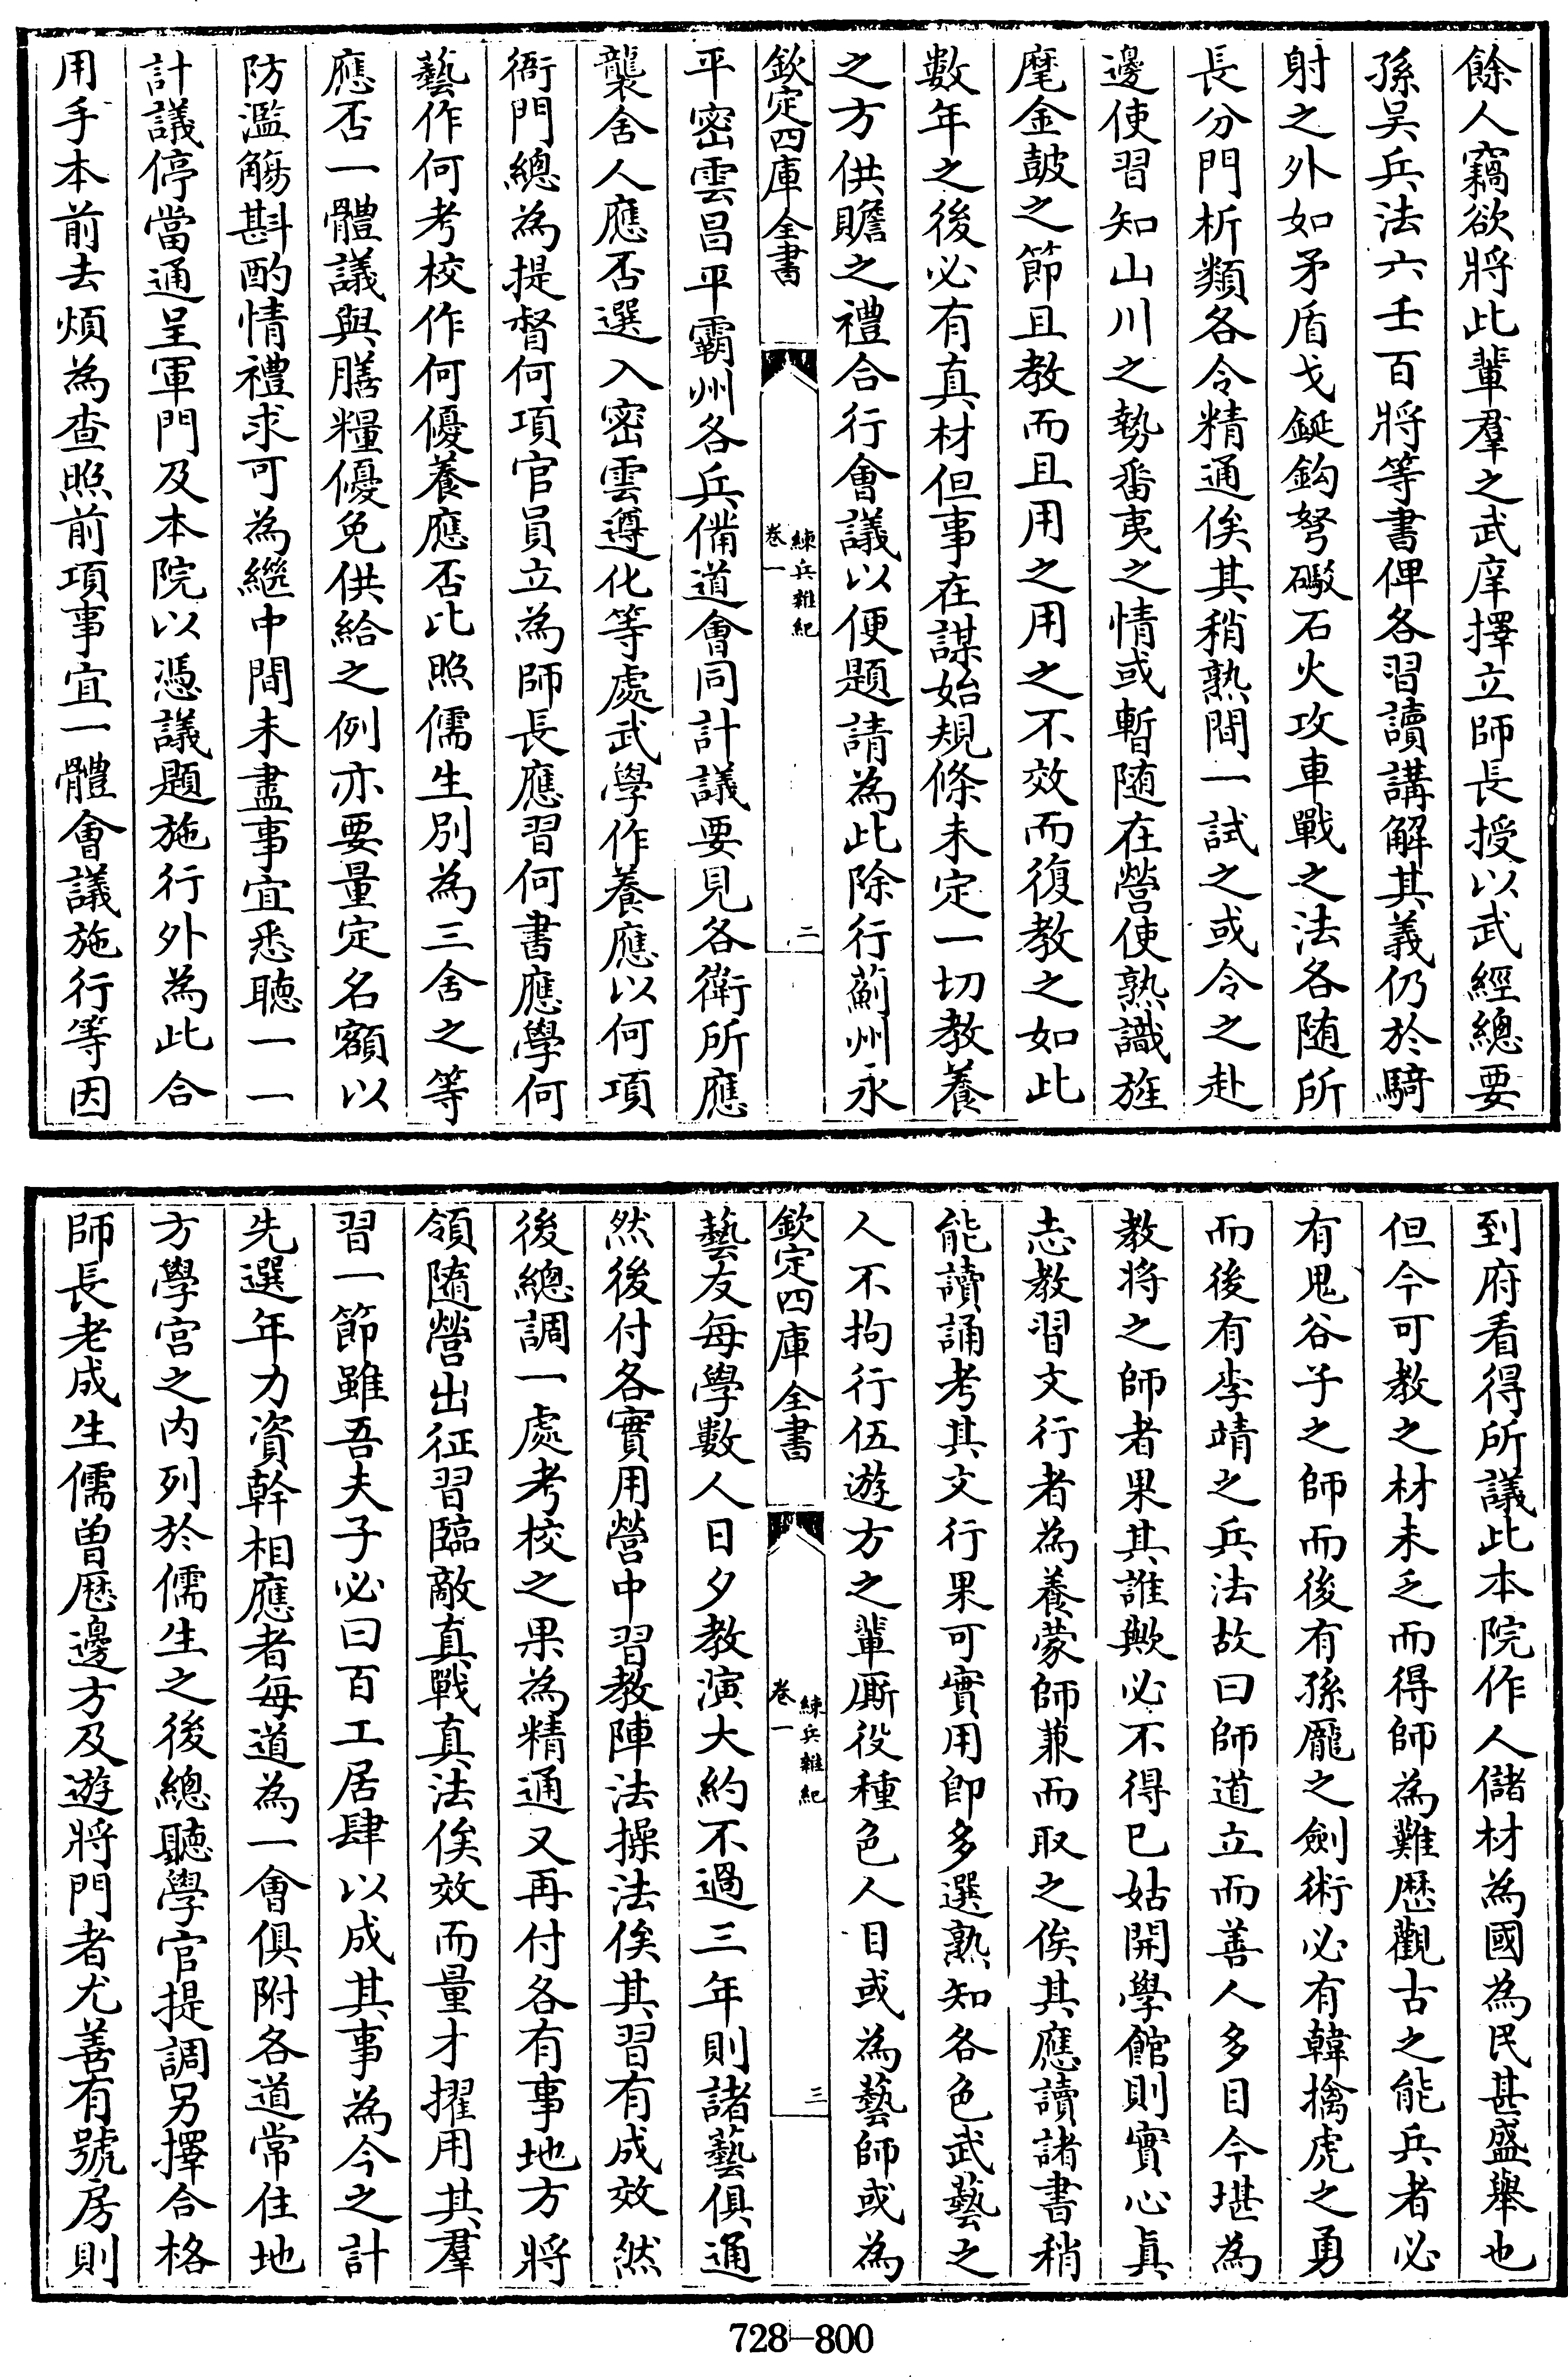 餘人竊欲將此輩羣之武庠擇立師長授以武經總要
孫吴兵法六壬百將等書俾各習讀講解其義仍於騎
射之外如矛盾戈鋋鈎弩礮石火攻車戰之法各随所
長分門析類各令精通俟其稍熟間一試之或令之赴
邊使習知山川之勢番夷之情或暫随在營使熟識旌
麾金鼓之節且教而且用之用之不效而復教之如此
數年之後必有真材但事在謀始規條未定一切教養
之方供贍之禮合行會議以便題請為此除行薊州永
欽定四庫全書
練兵雜紀
卷一
二
平密雲昌平霸州各兵備道會同計議要見各衛所應
襲舍人應否選入密雲遵化等處武學作養應以何項
衙門總為提督何項官員立為師長應習何書應學何
藝作何考校作何優養應否比照儒生別為三舍之等
應否一體議與膳糧優免供給之例亦要量定名額以
防濫觴斟酌情禮求可為繼中間未盡事宜悉聽一一
計議停當通呈軍門及本院以憑議題施行外為此合
用手本前去煩為查照前項事宜一體會議施行等因
到府看得所議此本院作人儲材為國為民甚盛舉也
但今可教之材未乏而得師為難歷觀古之能兵者必
有鬼谷子之師而後有孫龎之劍術必有韓擒虎之勇
而後有李靖之兵法故曰師道立而善人多目今堪為
教將之師者果其誰歟必不得已姑開學館則實心真
志教習文行者為養蒙師兼而取之俟其應讀諸書稍
能讀誦考其文行果可實用即多選熟知各色武藝之
人不拘行伍遊方之輩厮役種色人目或為藝師或為
欽定四庫全書
練兵雜紀
卷一
三
藝友每學數人日夕教演大約不過三年則諸藝俱通
然後付各實用營中習教陣法操法俟其習有成效然
後總調一處考校之果為精通又再付各有事地方將
領隨營出征習臨敵真戰真法俟效而量才擢用其羣
習一節雖吾夫子必曰百工居肆以成其事為今之計
先選年力資幹相應者每道為一會俱附各道常住地
方學宫之内列於儒生之後總聽學官提調另擇合格
師長老成生儒曽歴邊方及遊將門者尤善有號房則
728-800